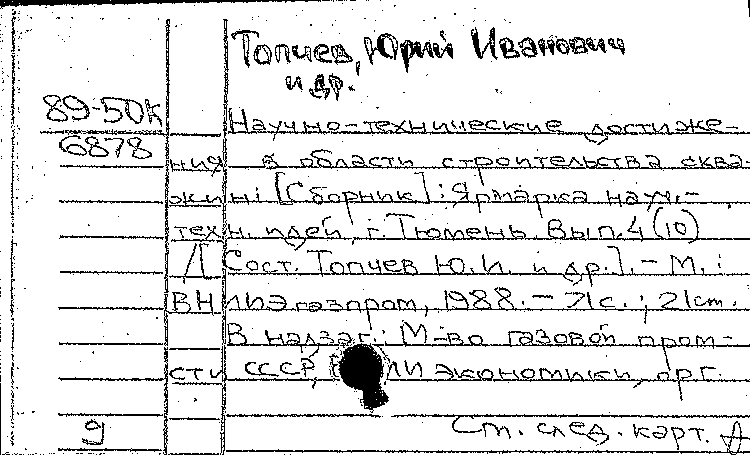 Топчев, Юрий Иванович
и др.
89-50К
6878
Научно-технические достиже-
ния в области строительства сква
жин: [Сборник]: Ярмарка науч.-
техн. идей, г. Тюмень. Вып. 4 (10)
/[Сост. Топчев Ю.И. и др.]. - М.:
ВНИИЭгазпром, 1988. - 71с.; 21см.
В надзаг.: М-во газовой пром-
сти СССР, ИИ экономики, орг.
9
См. след. карт.